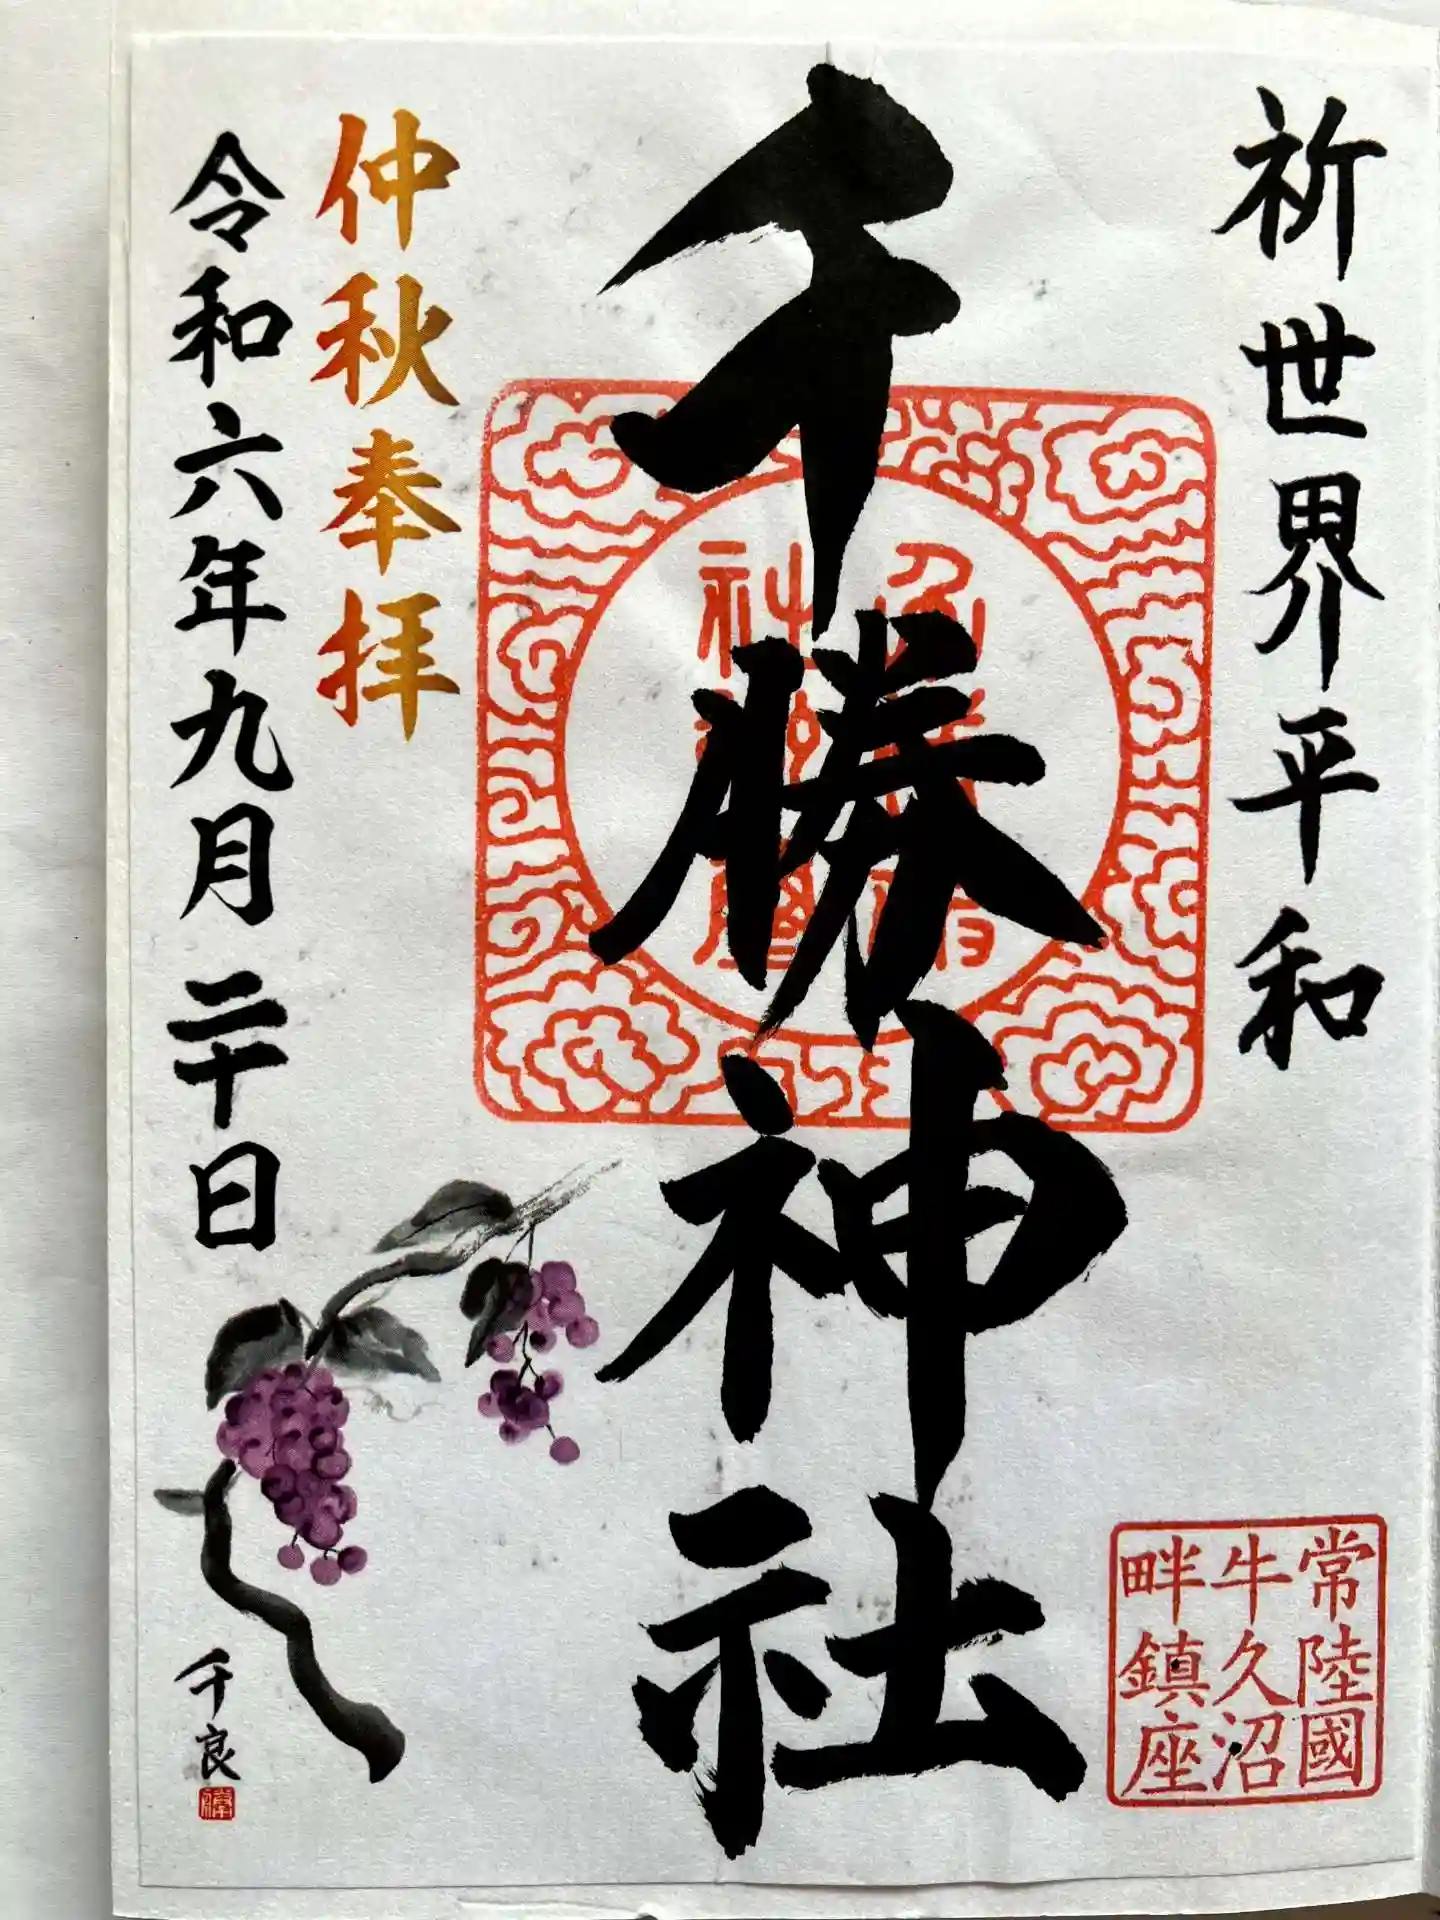 祈世界平和
常陸國
牛久沼
畔鎮座
千勝神社
仲秋奉拝
令和六年九月二十日
千良